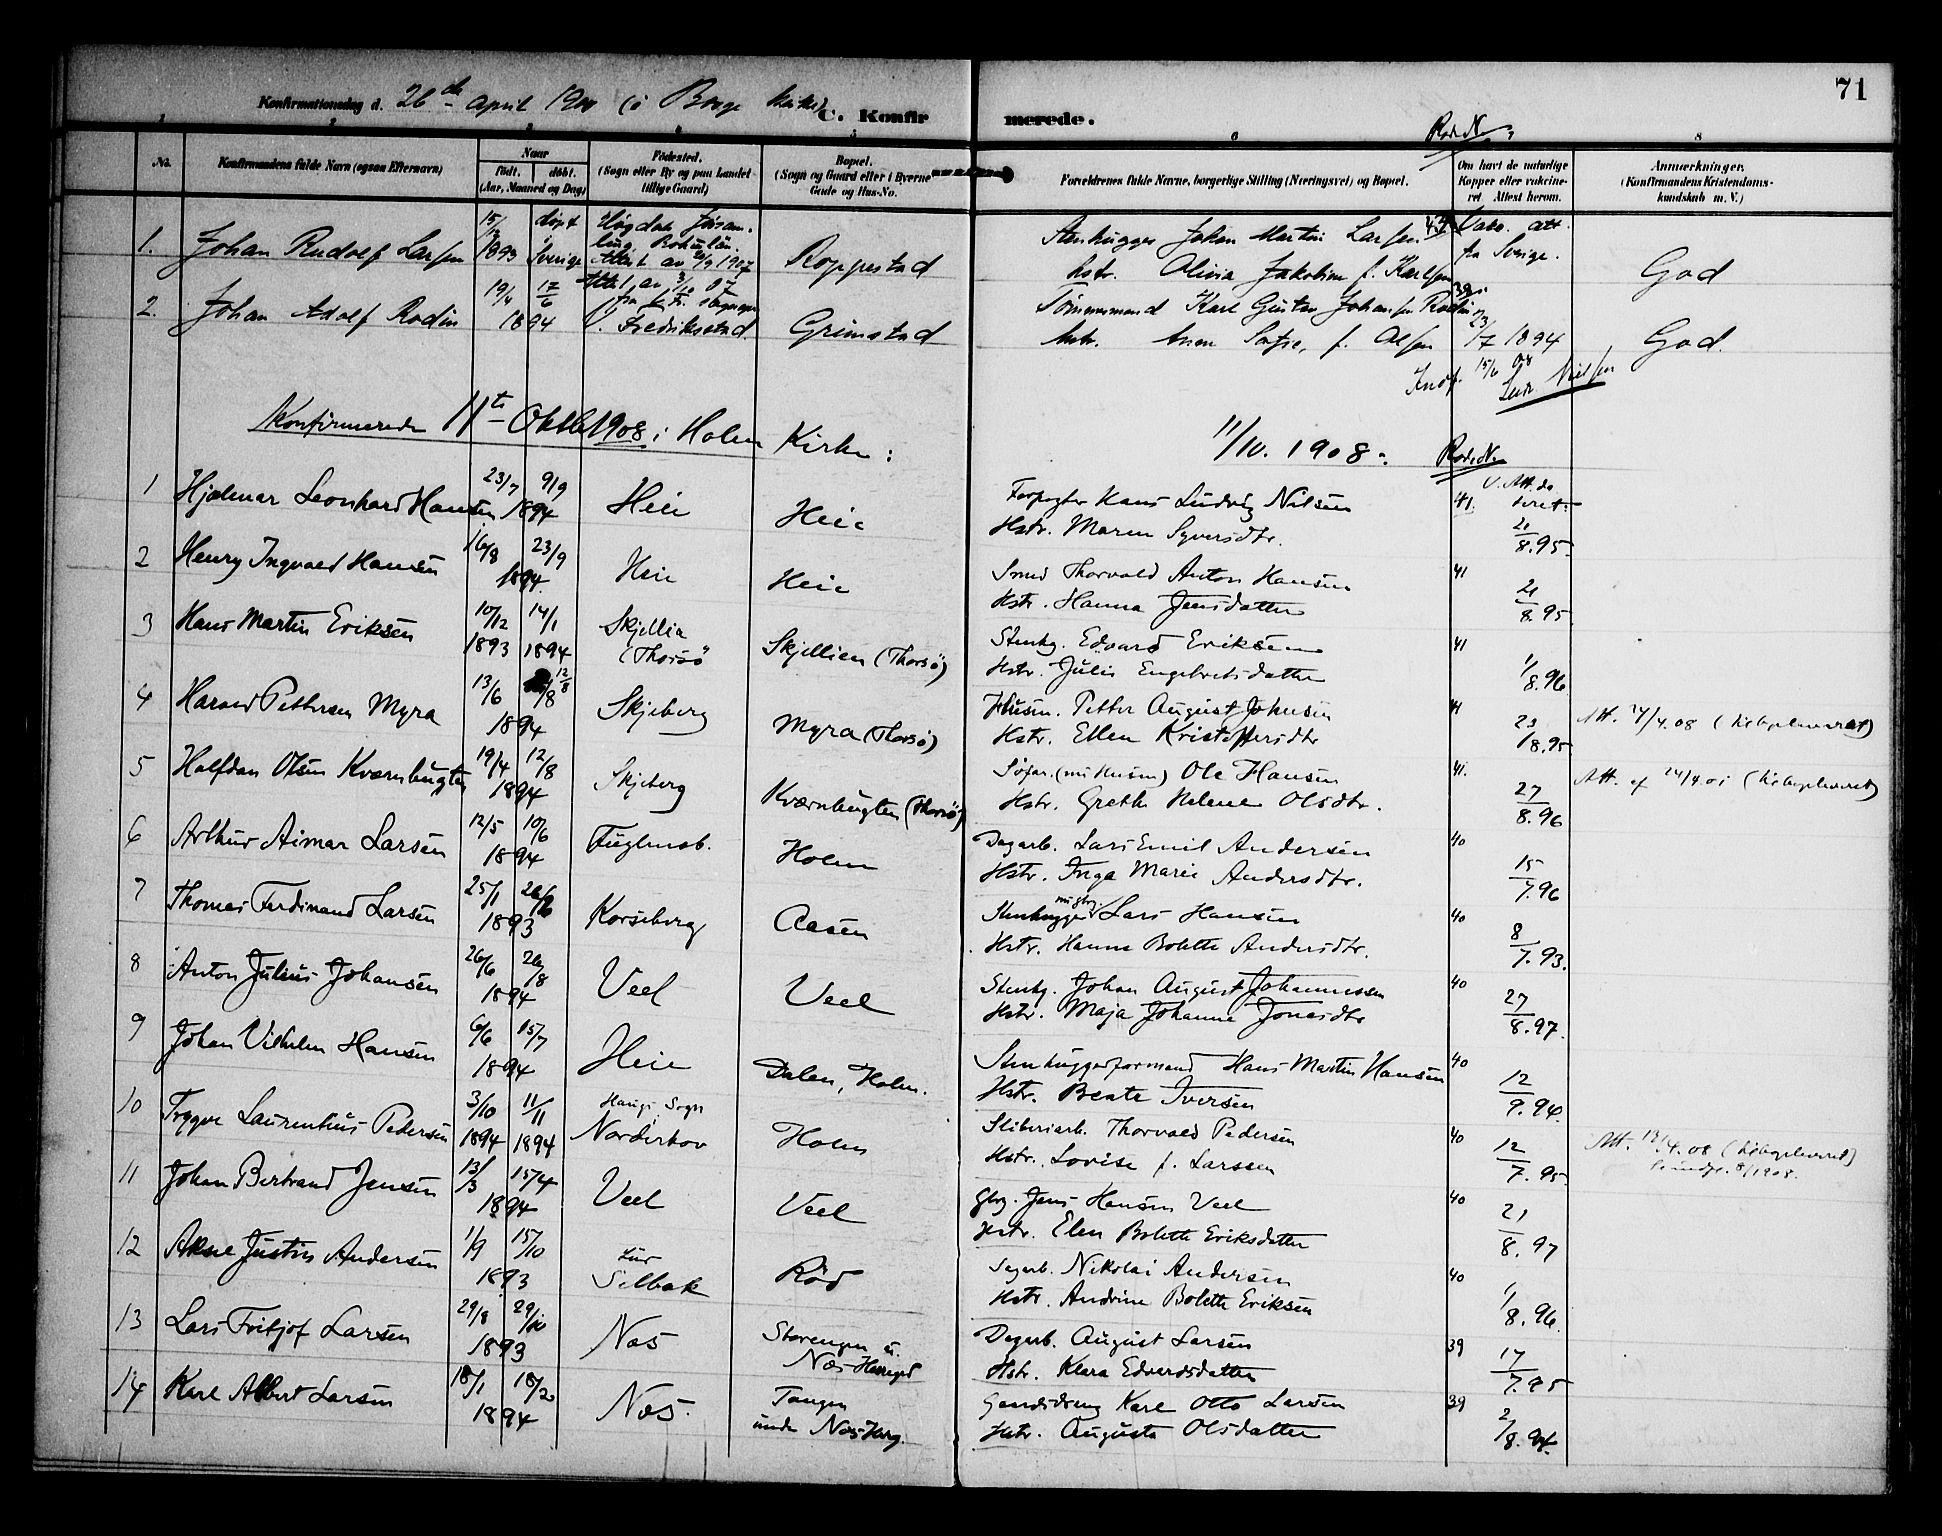 71
Konfirmationsdag d. 26de april 1908 (i Borge kirke) C. Konfirmerede.
Rode N.
No. Konfirmandens fulde Navn (ogsaa Efternavn)
Naar født. døbt. (Aar, Maaned og Dag)
Fødested. (Sogn eller By og paa Landet tillige Gaard)
Bopæl. (Sogn og Gaard eller i Byerne Gade og Hus-No.
Forældrenes fulde Navne, borgerlige Stilling (Næringsvei) og Bopæl.
Om havt de naturlige Kopper eller vakcineret. Attest herom.
Anmærkninger. (Konfirmandens Kristendomskundskab m. V.)
1. Johan Rudolf Larsen 15/12 1893 døpt i Sverige Bohuslän. Attest av 1907 Roppestad Stenhugger Johan Martin Larsen 43 Vabo. att. fra Sverige. God
hstr. Olivia Jakobine f. Karlsen
2. Johan Adolf Rodin 19/4 17/6 1894 V. Fredriksstad. Grimstad Tømmermand Karl Gustav Johansen Rodin 39 23/7 1894 God.
hstr. f. Olsen
15/6 08
Konfirmerede 11te Oktbr 1908 i Holm Kirke: 11/10. 1908. Rode N.
1 Hjalmar Leonhard Hansen 23/7 9/9 1894 Heie Heie Forpagter Hans Ludvig Nilsen 41.
Hstr. Maren Syversdtr. 8.95.
2 Henry Ingvald Hansen 16/8 23/9 1894. Heie Heie Smed Thorvald Anton Hansen 41
Hstr. Hanna Jensdatter 8.95
3 Hans Martin Eriksen 10/12 1893 14/1 1894 Skjellia (Thorsø Skjellien (Thorsø) Stenhg. Edvard Eriksen 41
Hstr. Julie Engebretsdatter 1/8.96
4 Harald Pettersen Myra 13/6 12/8 1894 Skjeberg Myra (Thorsø) Husm. Petter August Johnsen 41 23/8.95 Att. 24/4.08 (tilbageleveret)
Hstr. Ellen Kristoffersdtr
5 Halfdan Olsen Kværnbugten 19/4 12/8 1894 Skjeberg Kværnbugten (Thorsø) Søfar. (nu Husm) Ole Hansen 41. Att. af 24/4.08 (tilbageleveret)
Hstr. Grethe Helene Olsdtr. 27/8.96
6 Arthur Aimar Larsen 12/5 10/6 1894 Fuglenab. Holm Dagarb. Lars Emil Andersen 40
Hstr. Inga Marie Andersdtr. 15/7.96
7 Thomas Ferdinand Larsen 25/1 1893 Korseberg Aasen Stenhugger Lars Hansen 40
Hstr. Hanna Bolette Andersdtr. 8/7.93.
8 Anton Julius Johansen 26/6 26/8 1894 Veel Veel Stenhg. Johan August Johannessen 40
Hstr. Maja Johanne Jonasdtr 27/8.97.
9 Johan Vilhelm Hansen 6/6 15/7 1894 Heie Dalen, Holm. Stenhuggerformand Hans Martin Hansen 40
Hstr. Beate Iversen 12/9.94.
10 Trygve Laurenthius Pedersen 3/10 1894 11/11 1894 Haugs Sogn Norderhov Holm Sliberiarb. Thorvald Pedersen 40 Att. 19/4.08 (tilbageleveret)
Hstr. Lovise f. Larssen 12/7.95
11 Johan Bertrand Jensen 13/3 15/4 1894 Veel Veel Gbrg. Jens Hansen Veel 40
Hstr. Elen Bolette Eriksdatter 21/8.97
12 Aksel Justin Andersen 1/9 15/10 1893 Lur Selbak Rød Sagarb. Nikolai Andersen 40
Hstr. Andrine Bolette Eriksen 1/8.96
13 Lars Fritjof Larsen 29/8 29/10 1893 Næs Storengen u. Næs Herregd Dagarb. August Larsen 39
Hstr. Klara Edvardsdatter 17/7.95
14 Karl Albert Larsen 18/1 1894 Næs. Tangen under Næs Herg. Gaardsdreng Karl Otto Larsen 39
Hstr. Augusta Olsdatter 2/8.94.